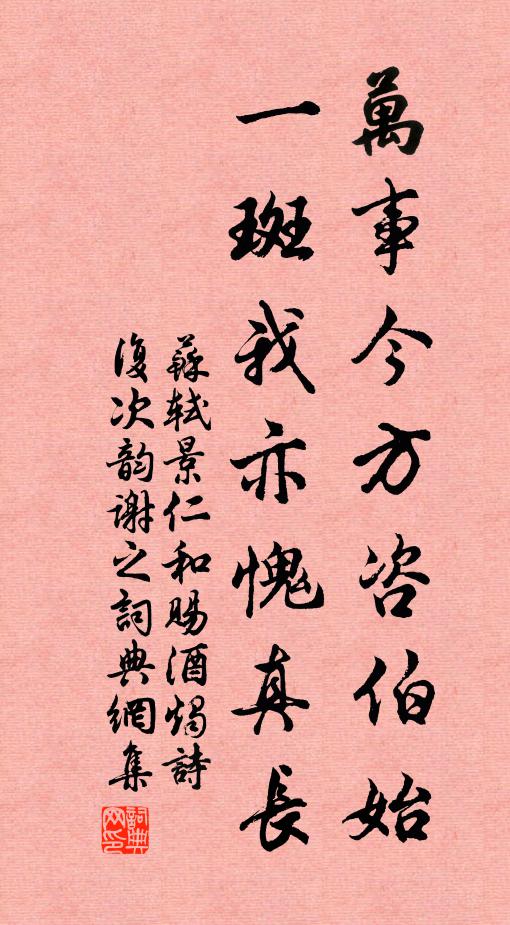 萬事今方咨伯始
一斑我亦愧真長
蘇軾景仁和賜酒燭詩
復次韵謝之詞典網集
詞典网印